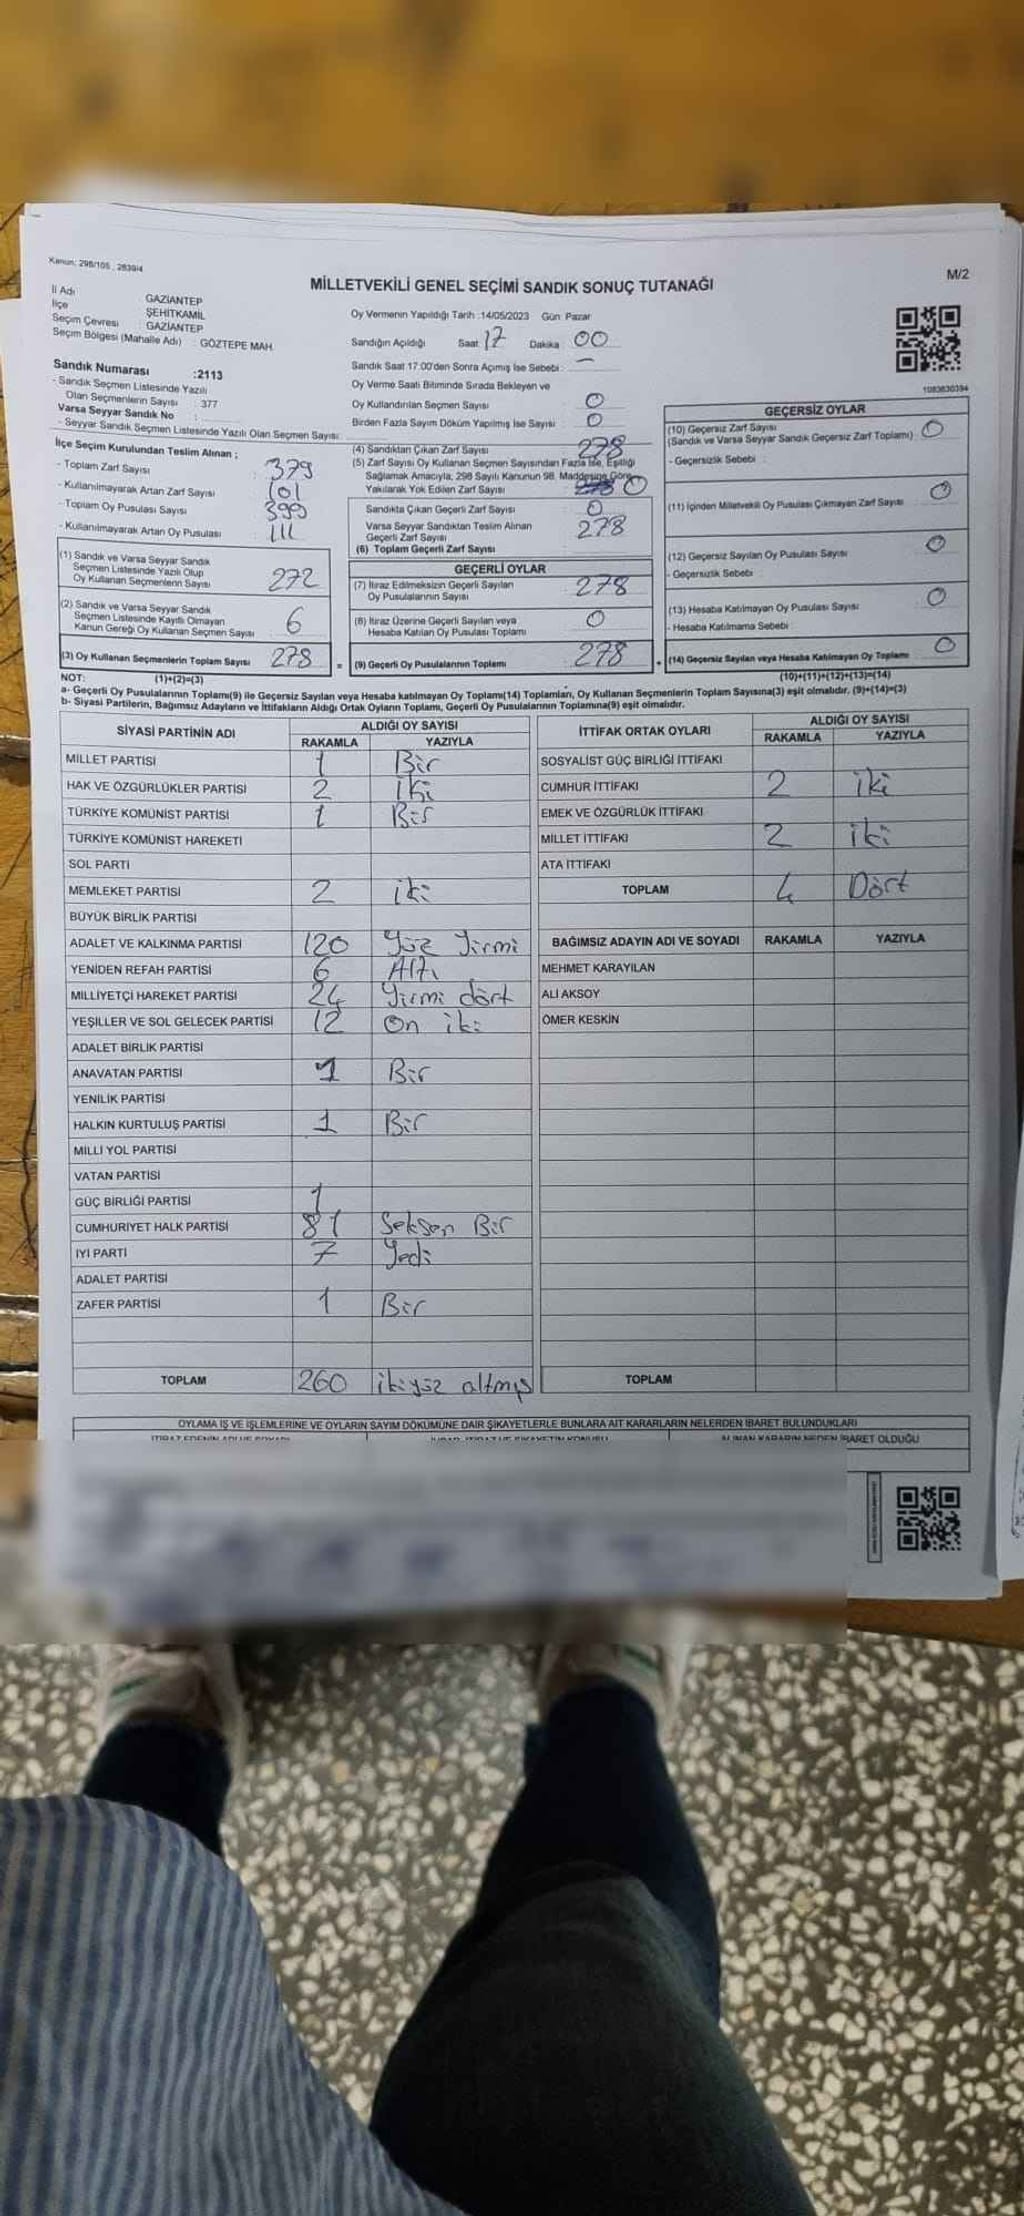 Kanun: 298/105 , 2839/4
MİLLETVEKİLİ GENEL SEÇİMİ SANDIK SONUÇ TUTANAĞI
M/2
İl Adı GAZİANTEP
İlçe ŞEHİTKAMİL
Seçim Çevresi GAZİANTEP
Seçim Bölgesi (Mahalle Adı) : GÖZTEPE MAH.
Sandık Numarası :2113
- Sandık Seçmen Listesinde Yazılı
Olan Seçmenlerin Sayısı : 377
Varsa Seyyar Sandık No :
- Seyyar Sandık Seçmen Listesinde Yazılı Olan Seçmen Sayısı:
İlçe Seçim Kurulundan Teslim Alınan ;
- Toplam Zarf Sayısı 379
- Kullanılmayarak Artan Zarf Sayısı 101
- Toplam Oy Pusulası Sayısı 399
- Kullanılmayarak Artan Oy Pusulası 111
(1) Sandık ve Varsa Seyyar Sandık
Seçmen Listesinde Yazılı Olup
Oy Kullanan Seçmenlerin Sayısı 272
(2) Sandık ve Varsa Seyyar Sandık
Seçmen Listesinde Kayıtlı Olmayan
Kanun Gereği Oy Kullanan Seçmen Sayısı 6
(3) Oy Kullanan Seçmenlerin Toplam Sayısı 278 =
Oy Vermenin Yapıldığı Tarih :14/05/2023 Gün Pazar
Sandığın Açıldığı Saat 17 Dakika : 00
Sandık Saat 17:00'den Sonra Açımış İse Sebebi : —
Oy Verme Saati Bitiminde Sırada Bekleyen ve
Oy Kullandırılan Seçmen Sayısı 0
Birden Fazla Sayım Döküm Yapılmış İse Sayısı : 0
(4) Sandıktan Çıkan Zarf Sayısı 278
(5) Zarf Sayısı Oy Kullanan Seçmen Sayısından Fazla İse, Eşitliği
Sağlamak Amacıyla, 298 Sayılı Kanunun 98. Maddesine Göre
Yakılarak Yok Edilen Zarf Sayısı 0
Sandıkta Çıkan Geçerli Zarf Sayısı 0
Varsa Seyyar Sandıktan Teslim Alınan
Geçerli Zarf Sayısı 278
(6) Toplam Geçerli Zarf Sayısı
GEÇERLİ OYLAR
(7) İtiraz Edilmeksizin Geçerli Sayılan
Oy Pusulalarının Sayısı 278
(8) İtiraz Üzerine Geçerli Sayılan veya
Hesaba Katılan Oy Pusulası Toplamı 0
(9) Geçerli Oy Pusulalarının Toplamı 278 +
1083630394
GEÇERSİZ OYLAR
(10) Geçersiz Zarf Sayısı
(Sandık ve Varsa Seyyar Sandık Geçersiz Zarf Toplamı) : 0
- Geçersizlik Sebebi :
(11) İçinden Milletvekili Oy Pusulası Çıkmayan Zarf Sayısı 0
(12) Geçersiz Sayılan Oy Pusulası Sayısı 0
- Geçersizlik Sebebi :
(13) Hesaba Katılmayan Oy Pusulası Sayısı 0
- Hesaba Katılmama Sebebi :
(14) Geçersiz Sayılan veya Hesaba Katılmayan Oy Toplamı 0
NOT: (1)+(2)=(3) (10)+(11)+(12)+(13)=(14)
a- Geçerli Oy Pusulalarının Toplamı(9) ile Geçersiz Sayılan veya Hesaba katılmayan Oy Toplamı(14) Toplamları, Oy Kullanan Seçmenlerin Toplam Sayısına(3) eşit olmalıdır. (9)+(14)=(3)
b- Siyasi Partilerin, Bağımsız Adayların ve İttifakların Aldığı Ortak Oyların Toplamı, Geçerli Oy Pusulalarının Toplamına(9) eşit olmalıdır.
SİYASİ PARTİNİN ADI ALDIĞI OY SAYISI
RAKAMLA YAZIYLA
MİLLET PARTİSİ 1 Bir
HAK VE ÖZGÜRLÜKLER PARTİSİ 2 İki
TÜRKİYE KOMÜNİST PARTİSİ 1 Bir
TÜRKİYE KOMÜNİST HAREKETİ
SOL PARTİ
MEMLEKET PARTİSİ 2 iki
BÜYÜK BİRLİK PARTİSİ
ADALET VE KALKINMA PARTİSİ 120 Yüz Yirmi
YENİDEN REFAH PARTİSİ 6 Altı
MİLLİYETÇİ HAREKET PARTİSİ 24 Yirmi dört
YEŞİLLER VE SOL GELECEK PARTİSİ 12 On iki
ADALET BİRLİK PARTİSİ
ANAVATAN PARTİSİ 1 Bir
YENİLİK PARTİSİ
HALKIN KURTULUŞ PARTİSİ 1 Bir
MİLLİ YOL PARTİSİ
VATAN PARTİSİ
GÜÇ BİRLİĞİ PARTİSİ 1
CUMHURİYET HALK PARTİSİ 81 Seksen Bir
İYİ PARTİ 7 Yedi
ADALET PARTİSİ
ZAFER PARTİSİ 1 Bir
TOPLAM 260 ikiyüz altmış
İTTİFAK ORTAK OYLARI ALDIĞI OY SAYISI
RAKAMLA YAZIYLA
SOSYALİST GÜÇ BİRLİĞİ İTTİFAKI
CUMHUR İTTİFAKI 2 iki
EMEK VE ÖZGÜRLÜK İTTİFAKI
MİLLET İTTİFAKI 2 iki
ATA İTTİFAKI
TOPLAM 4 Dört
BAĞIMSIZ ADAYIN ADI VE SOYADI RAKAMLA YAZIYLA
MEHMET KARAYILAN
ALİ AKSOY
ÖMER KESKİN
TOPLAM
OYLAMA İŞ VE İŞLEMLERİNE VE OYLARIN SAYIM DÖKÜMÜNE DAİR ŞİKAYETLERLE BUNLARA AİT KARARLARIN NELERDEN İBARET BULUNDUKLARI
ALINAN KARARIN NEDEN İBARET OLDUĞU